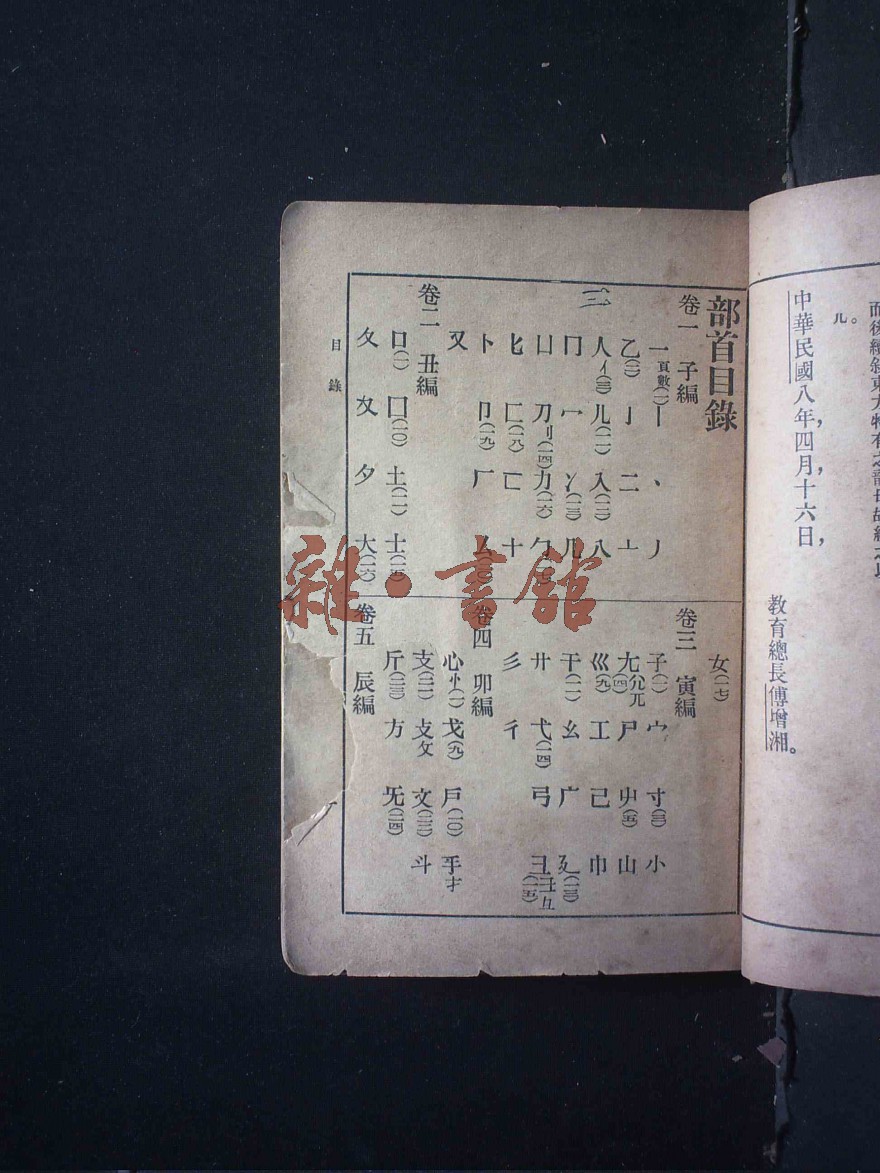 中華民國八年四月十六日,
教育總長傅增湘。
部首目錄
卷一 子編
一頁數(一) 丨 丶 丿
乙(二) 亅 二 亠
人亻(三) 儿(一一) 入(一二) 八
冂 冖 冫(一三) 几
凵 刀刂(一四) 力(一六) 勹
匕 匚(一八) 匸 十
卜 卩(一九) 厂 厶
又
卷二 丑編
口(一) 囗(一〇) 土(一一) 士(一五)
夂 夊 夕 大(一六)
女(一七)
卷三 寅編
子(一) 宀 寸(三) 小
尢尣兀(四) 尸 屮(五) 山
巛(九) 工 己 巾
干(一一) 幺 广 廴(一三)
廾 弋(一四) 弓 彐彑(一五)
彡 彳
卷四 卯編
心忄(一) 戈(九) 戶(一〇) 手扌
支(二一) 攴攵 文(二二) 斗
斤(二三) 方 无(二四)
卷五 辰編
目錄
雜·書館